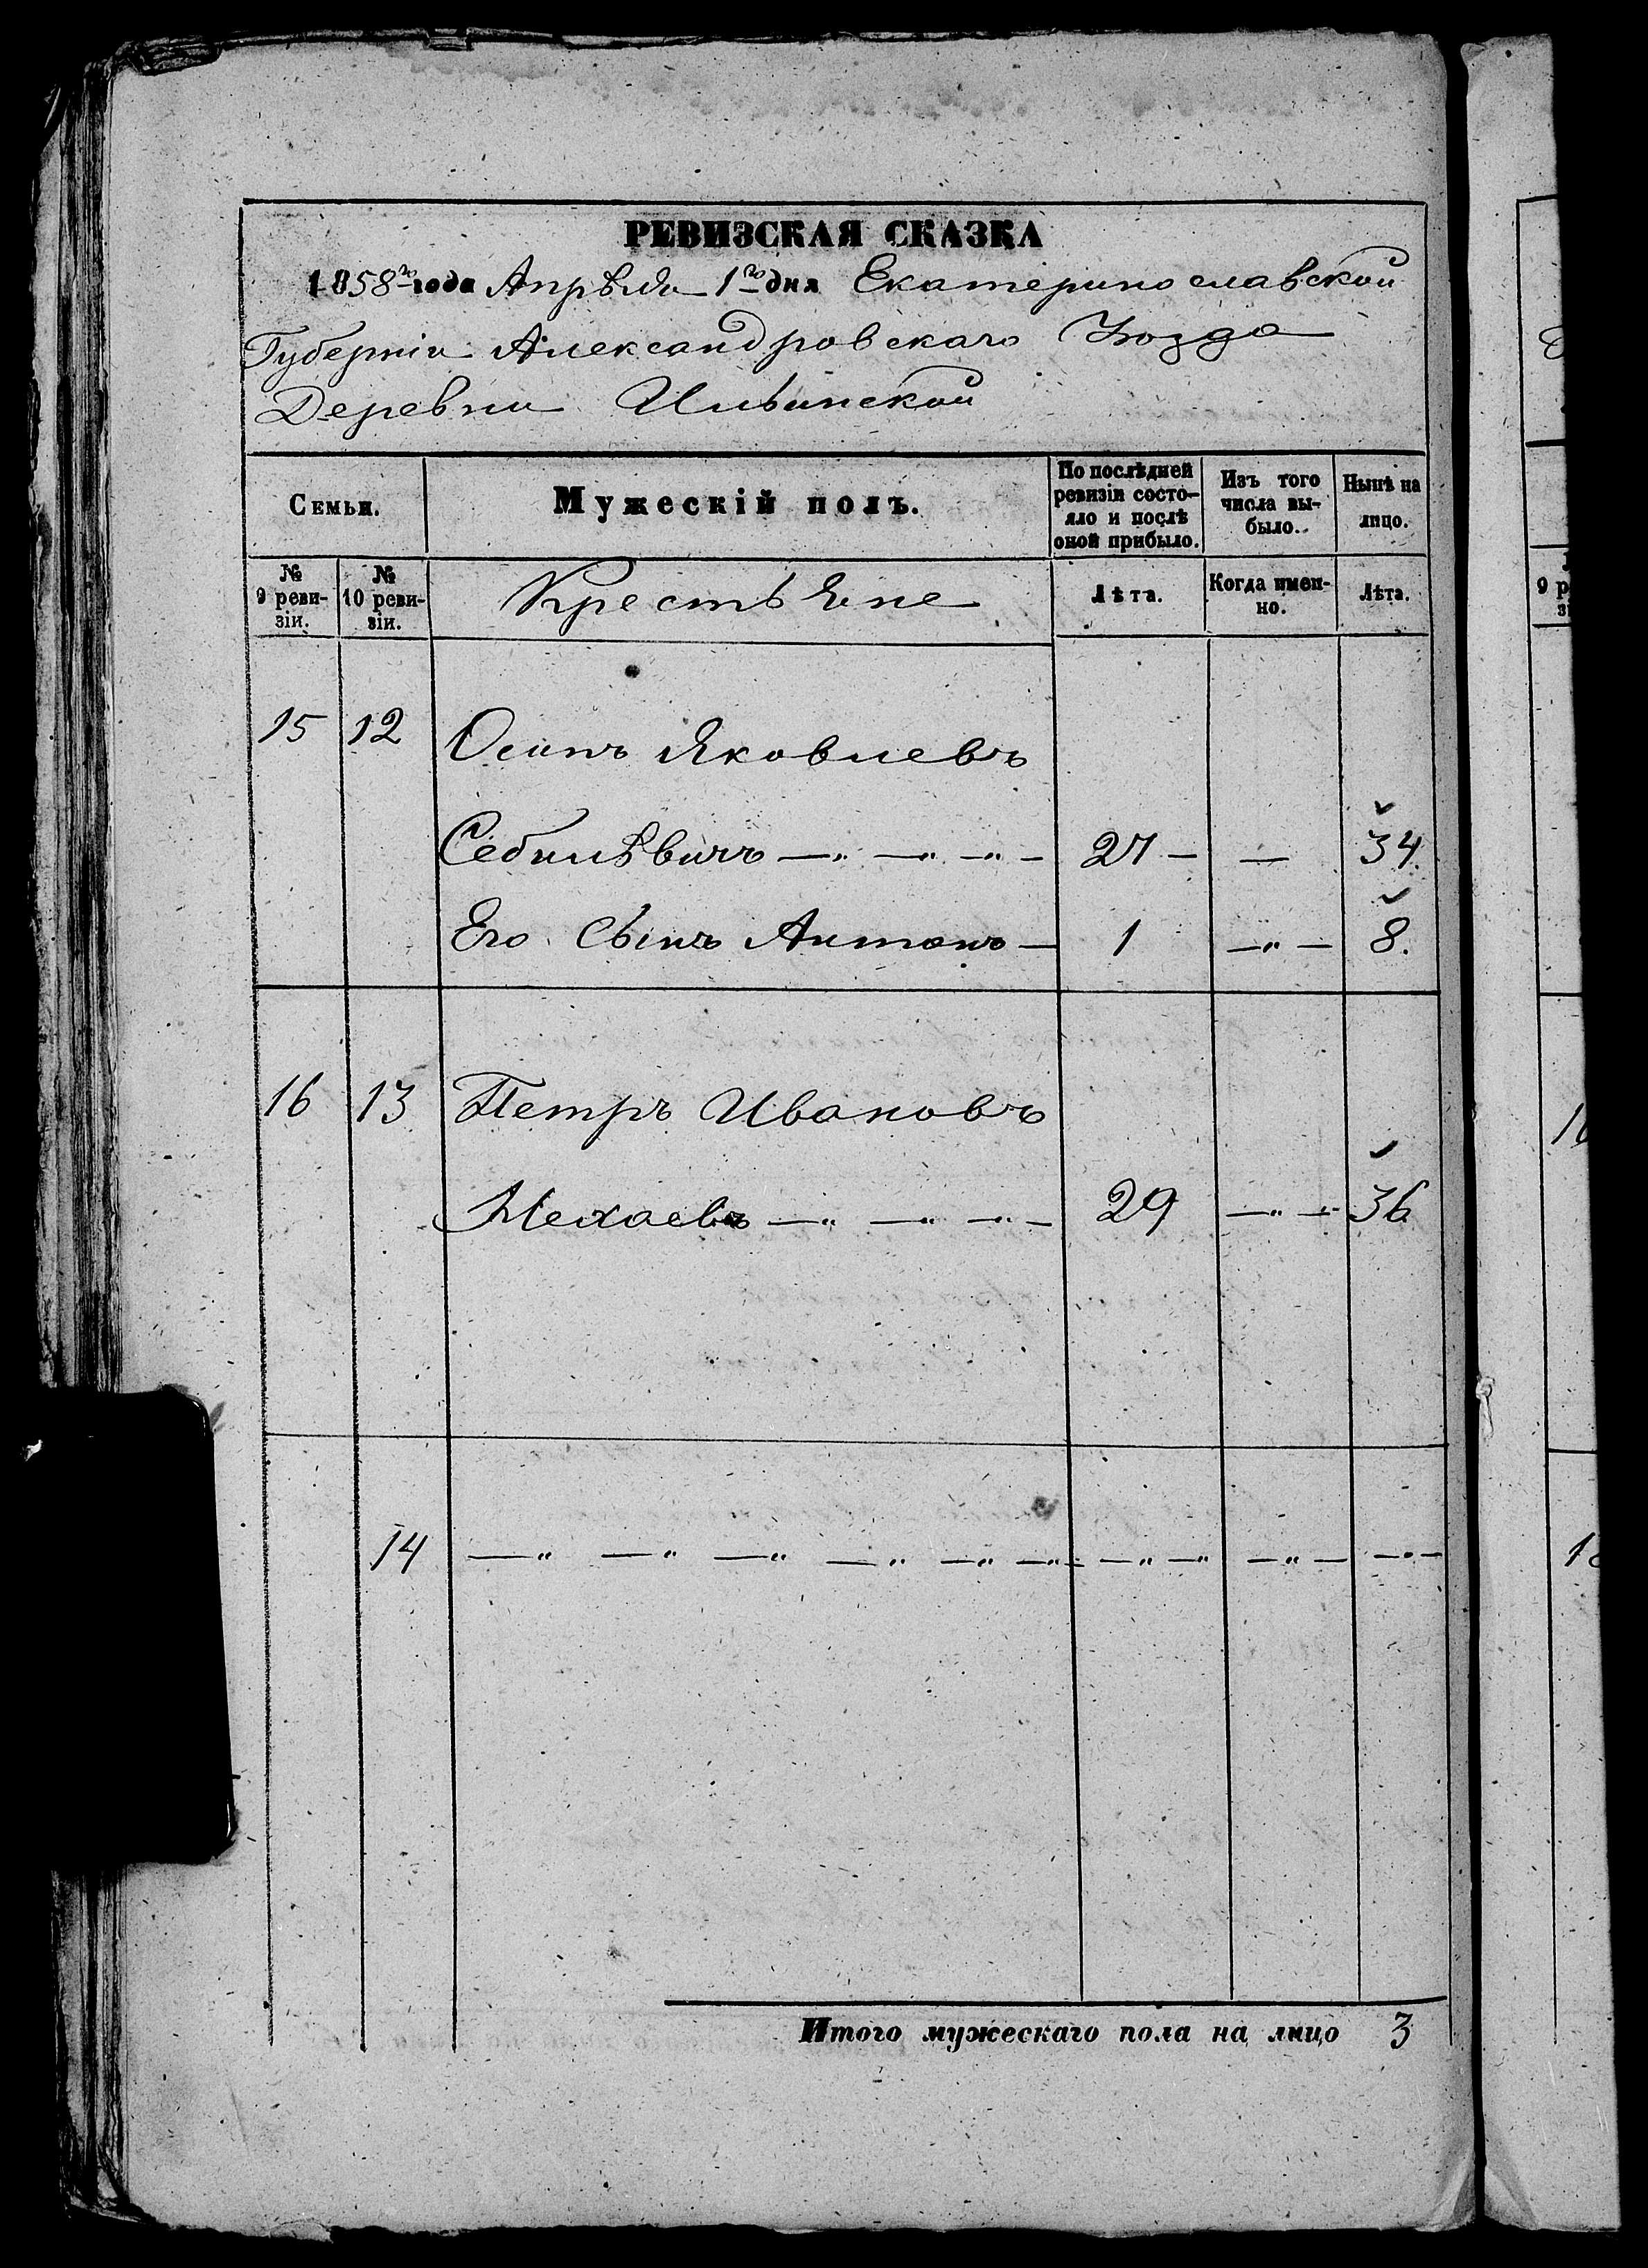 РЕВИЗСКАЯ СКАЗКА
1858го года Апрѣля 1го дня Екатеринославской
Губерніи Александровскаго Уѣзда
Деревни Ильинской
Семьи. Мужескій полъ. По послѣдней ревизіи состо-
яло и послѣ
оной прибыло. Изъ того
числа вы-
было. Нынѣ на
лицо.
№
9 реви-
зіи. №
10 реви-
зіи. Крестьяне Лѣта. Когда имен-
но. Лѣта.
15 12 Осипъ Яковлевъ
Себилѣвичъ —„ —„ —„ — 27 — — 34.
Его Сынъ Антонъ — 1 —„— 8.
16 13 Петръ Ивановъ
Мехаевъ —„ —„ —„ — 29 —„ — 36
14 —„ —„ —„ —„ —„ —„ —„ —„ —„— —„—
Итого мужескаго пола на лицо 3
9 р
1
1